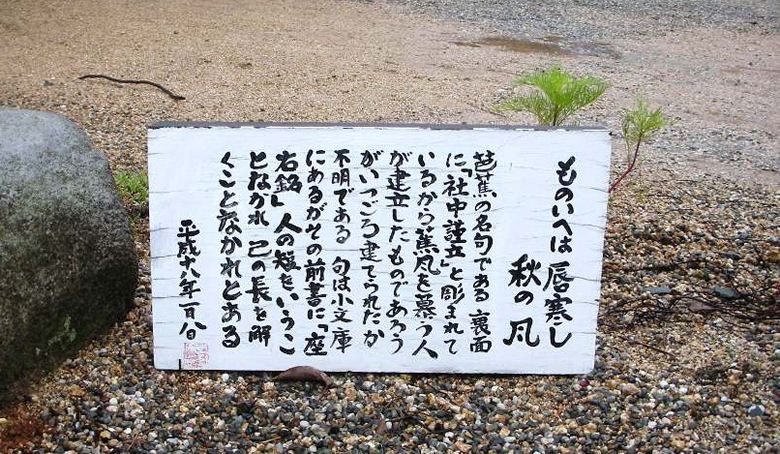 ものいへは 唇寒し
秋の風
芭蕉の名句である 裏面
に「社中謹立」と彫まれて
いるから蕉風を慕う人
が建立したものであろう
がいつごろ建てられたか
不明である 句は小文庫
にあるがその前書に「座
右銘」人の短をいうこ
となかれ 己の長を解
くことなかれとある
平成十八年一月八日